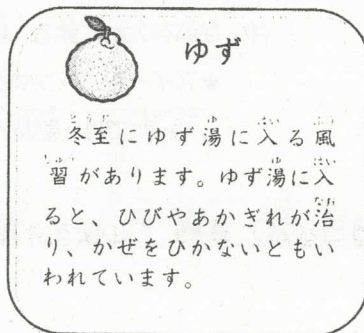 ゆず
冬至にゆず湯に入る風
習があります。ゆず湯に入
ると、ひびやあかぎれが治
り、かぜをひかないともい
われています。